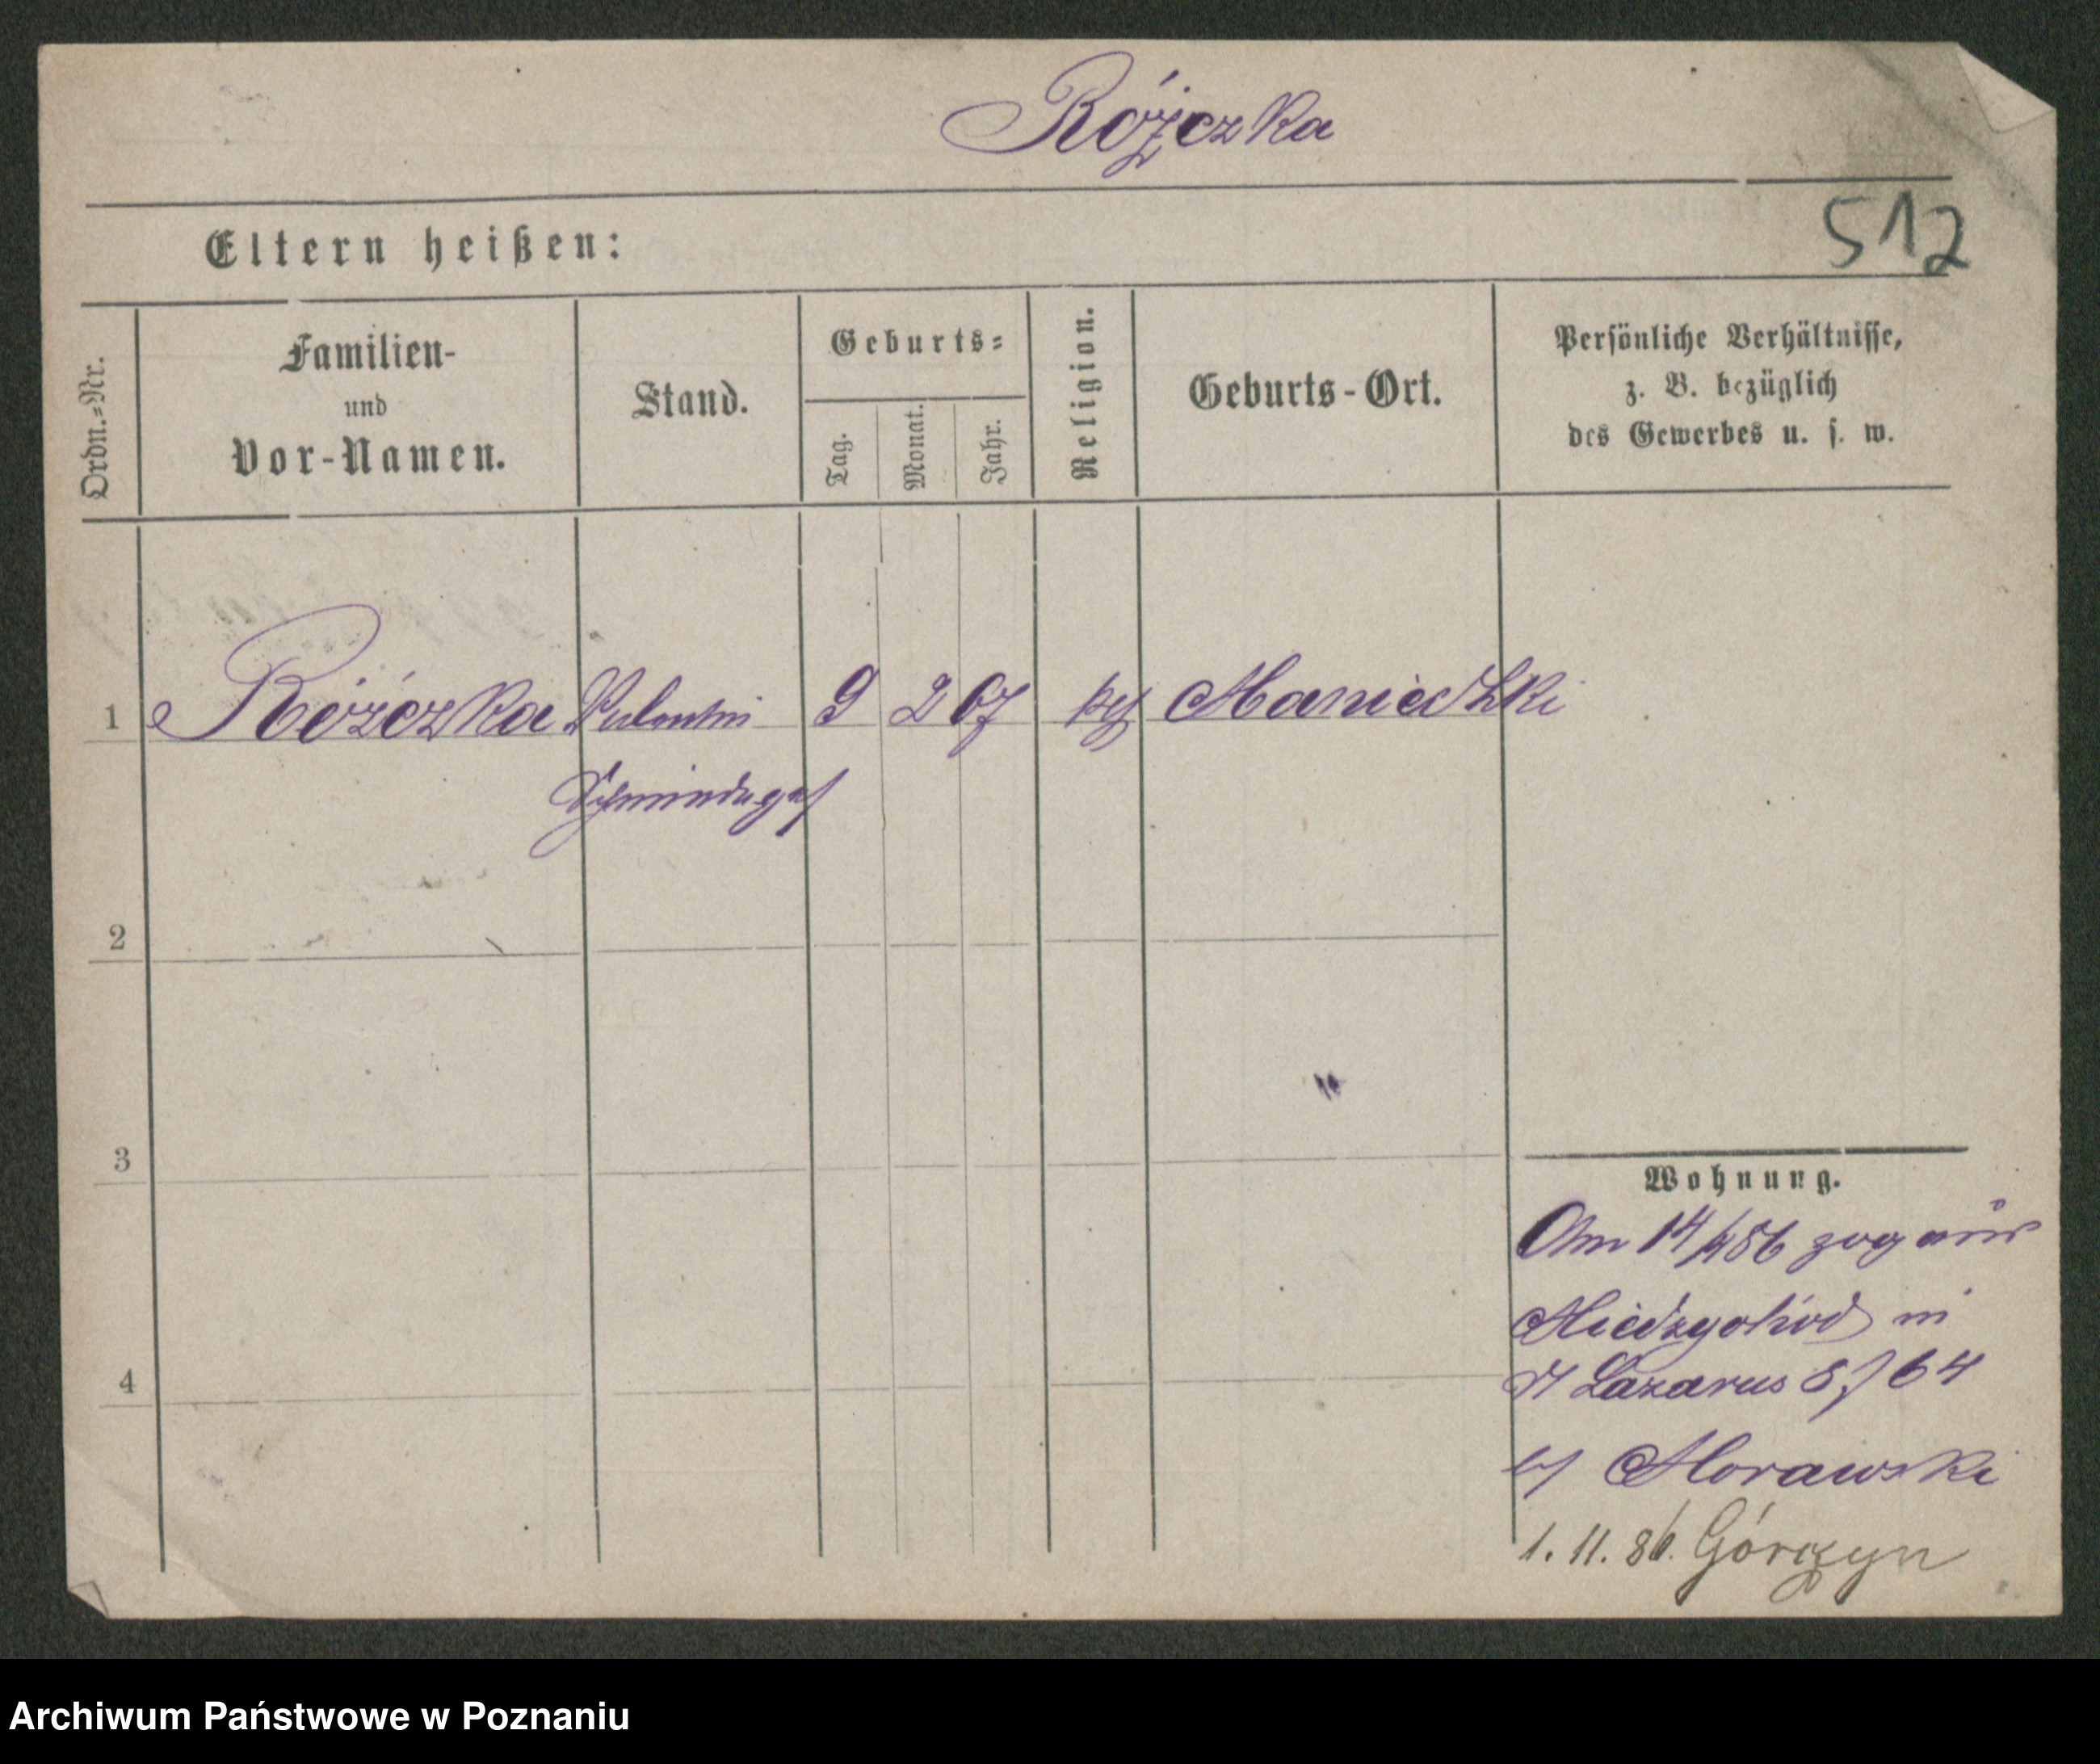 Różczka
Eltern heißen:
512
Ordn.=Nr.
Familien-
und
Vor-Namen.
Stand.
Geburts=
Tag.
Monat.
Jahr.
Religion.
Geburts-Ort.
Persönliche Verhältnisse,
z. B. bezüglich
des Gewerbes u. s. w.
1 Różczka Valentin 9 2 67 Maniechki
2
3
4
Wohnung.
Am 14/ 86 zog aus
Miedzychod in
St Lazarus 64
Morawski
1. 11. 86. Górczyn
Archiwum Państwowe w Poznaniu